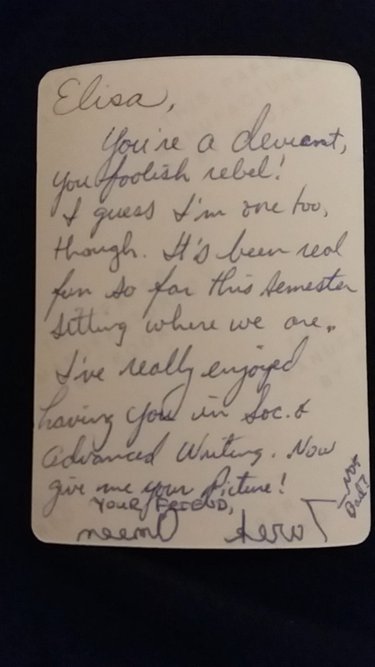 Elisa,
You're a deviant,
you foolish rebel!
I guess I'm one too,
though. It's been real
fun so far this semester
sitting where we are..
I've really enjoyed
having you in Soc. &
Advanced Writing. Now
give me your picture!
YOUR FRIEND,
Not
Bad?